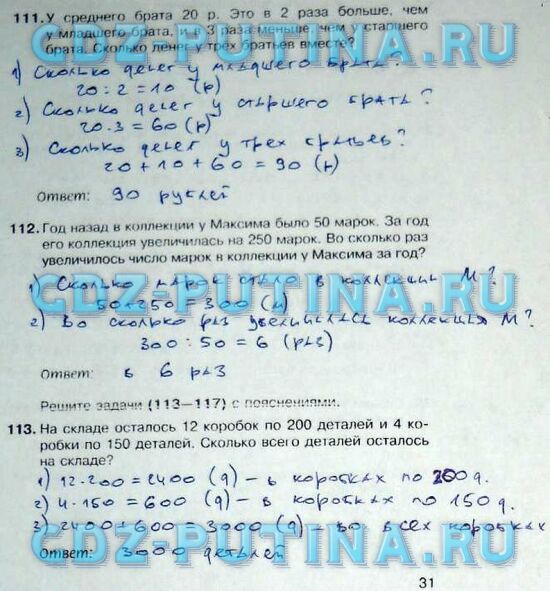 111. У среднего брата 20 р. Это в 2 раза больше, чем
у младшего брата, и в 3 раза меньше, чем у старшего
брата. Сколько денег у трёх братьев вместе?
1) Сколько денег у младшего брата?
20 : 2 = 10 (р)
2) Сколько денег у старшего брата?
20 · 3 = 60 (р)
3) Сколько денег у трех братьев?
20 + 10 + 60 = 90 (р)
Ответ: 90 рублей
112. Год назад в коллекции у Максима было 50 марок. За год
его коллекция увеличилась на 250 марок. Во сколько раз
увеличилось число марок в коллекции у Максима за год?
1) Сколько марок стало в коллекции М?
50 + 250 = 300 (м)
2) Во сколько раз увеличилась коллекция М?
300 : 50 = 6 (раз)
Ответ: в 6 раз
Решите задачи (113—117) с пояснениями.
113. На складе осталось 12 коробок по 200 деталей и 4 ко-
робки по 150 деталей. Сколько всего деталей осталось
на складе?
1) 12 · 200 = 2400 (д) – в коробках по 200 д.
2) 4 · 150 = 600 (д) – в коробках по 150 д.
3) 2400 + 600 = 3000 (д) – во всех коробках
Ответ: 3000 деталей
31
GDZ-PUTINA.RU
GDZ-PUTINA.RU
GDZ-PUTINA.RU
GDZ-PUTINA.RU
GDZ-PUTINA.RU